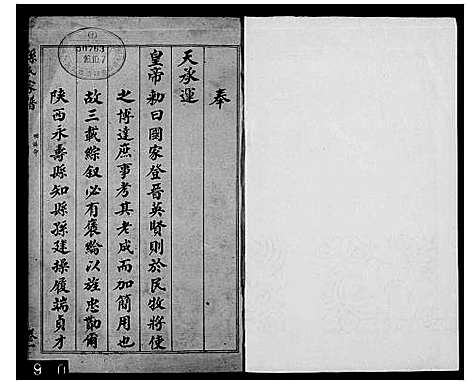 奉
天承運
皇帝勅曰國家登晉英賢則於民牧將使
之博達庶事考其老成而加簡用也
故三載綜叙必有褒綸以旌忠勤爾
陝西永壽縣知縣孫建操履端貞才
孫氏家譜
卷一
50763